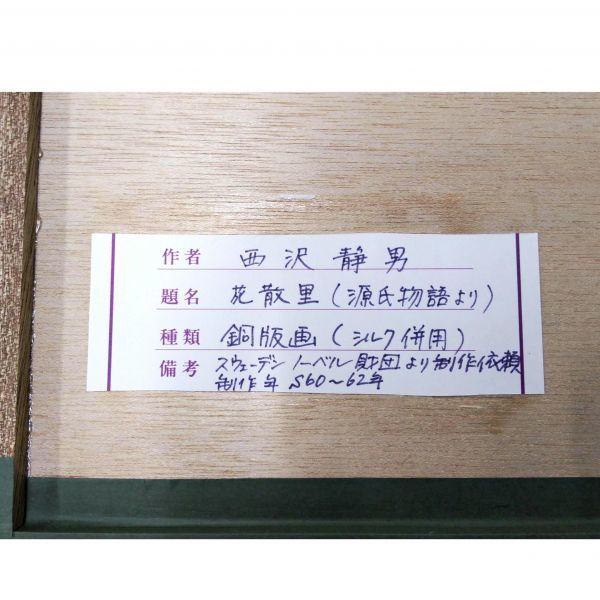 作者 西沢静男
題名 花散里(源氏物語より)
種類 銅版画(シルク併用)
備考 スウェーデン ノーベル財団より制作依頼
制作年 S60〜62年